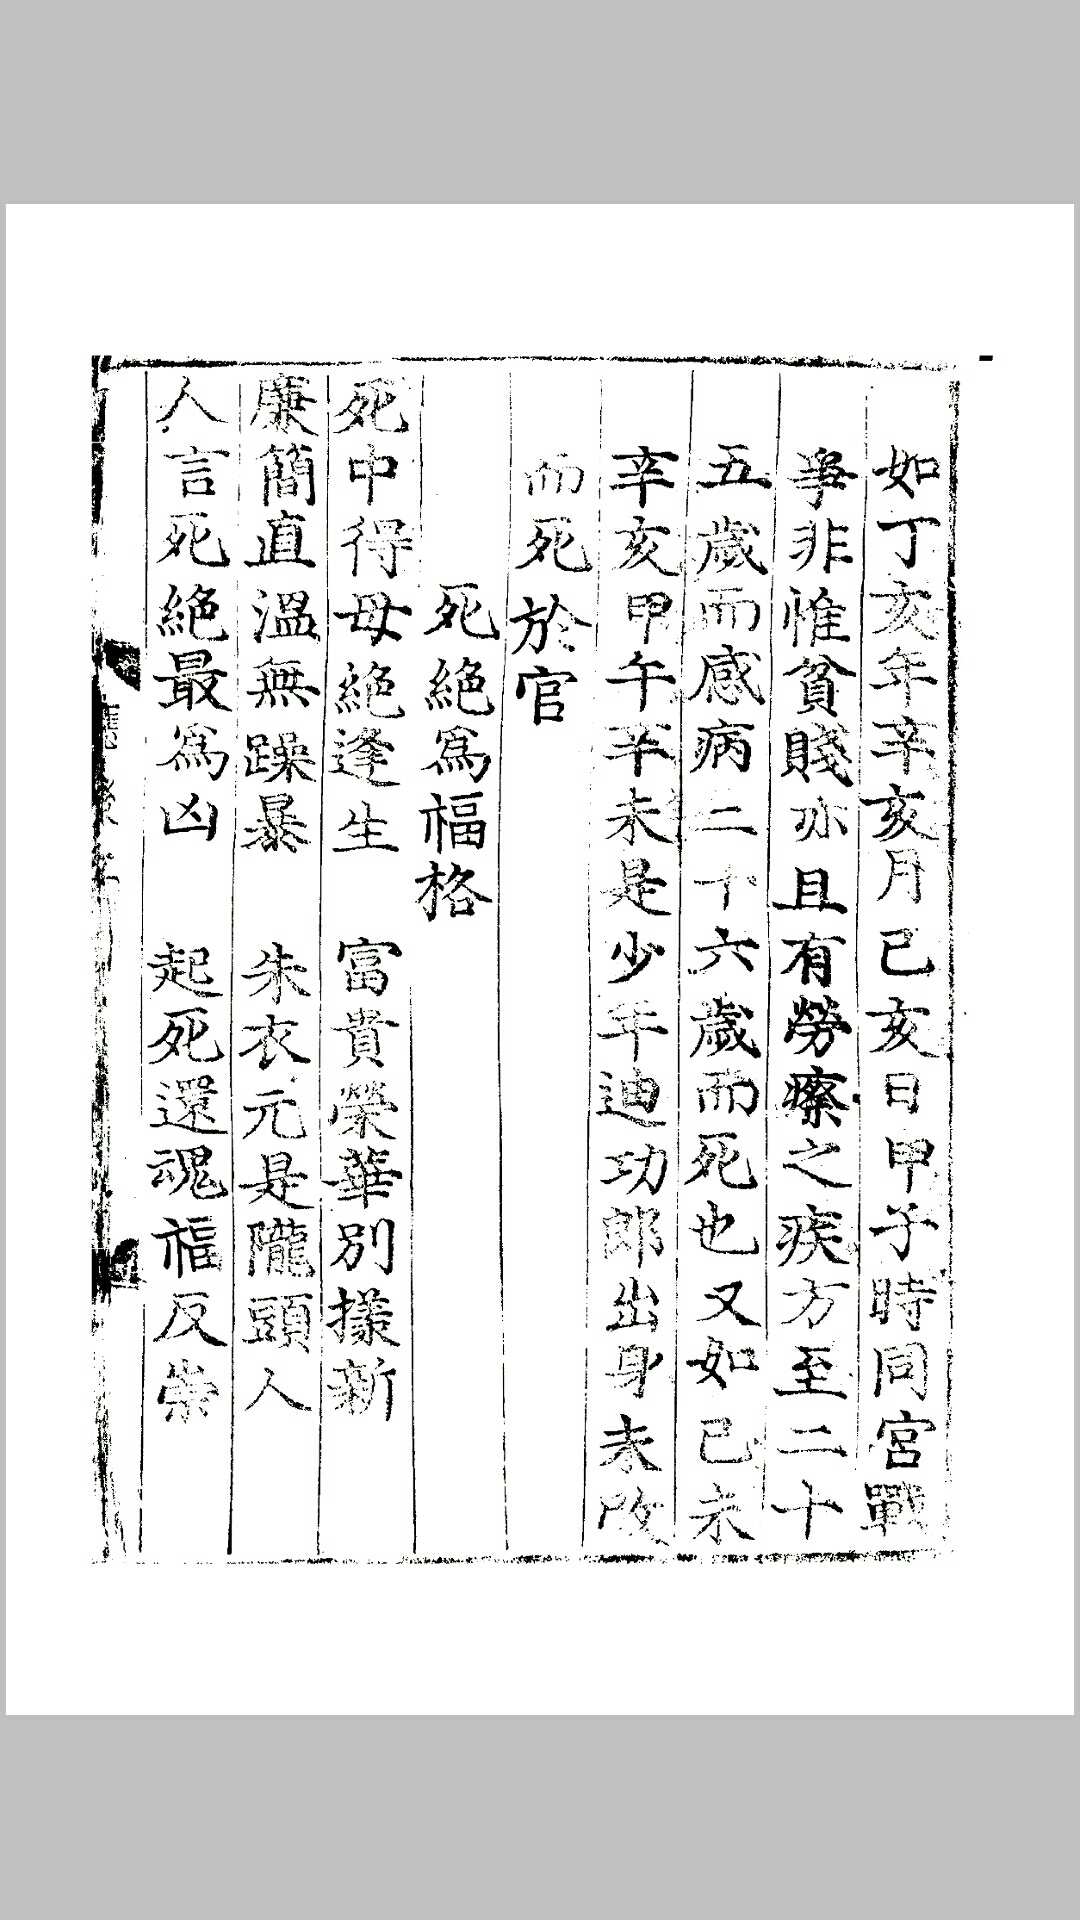 如丁亥年辛亥月己亥日甲子時同宮戰
爭非惟貧賤亦且有勞瘵之疾方至二十
五歲而感病二十六歲而死也又如己未
辛亥甲午辛未是少年迪功郎出身未改
而死於官
死絕爲福格
死中得母絕逢生　富貴榮華別㨾新
廉簡直溫無躁暴　朱衣元是隴頭人
人言死絕最爲凶　起死還魂福反崇